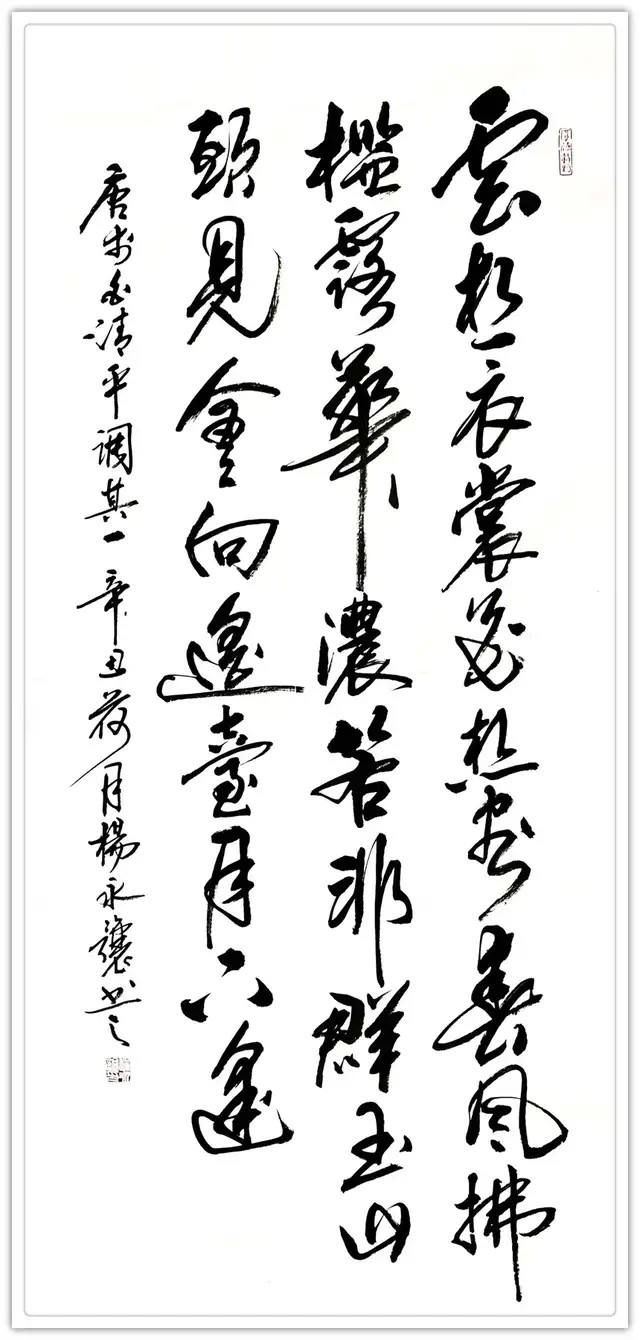 雲想衣裳花想容春風拂
檻露華濃若非群玉山
頭見會向遙臺月下逢
唐李白清平調其一 辛丑荷月楊永書之